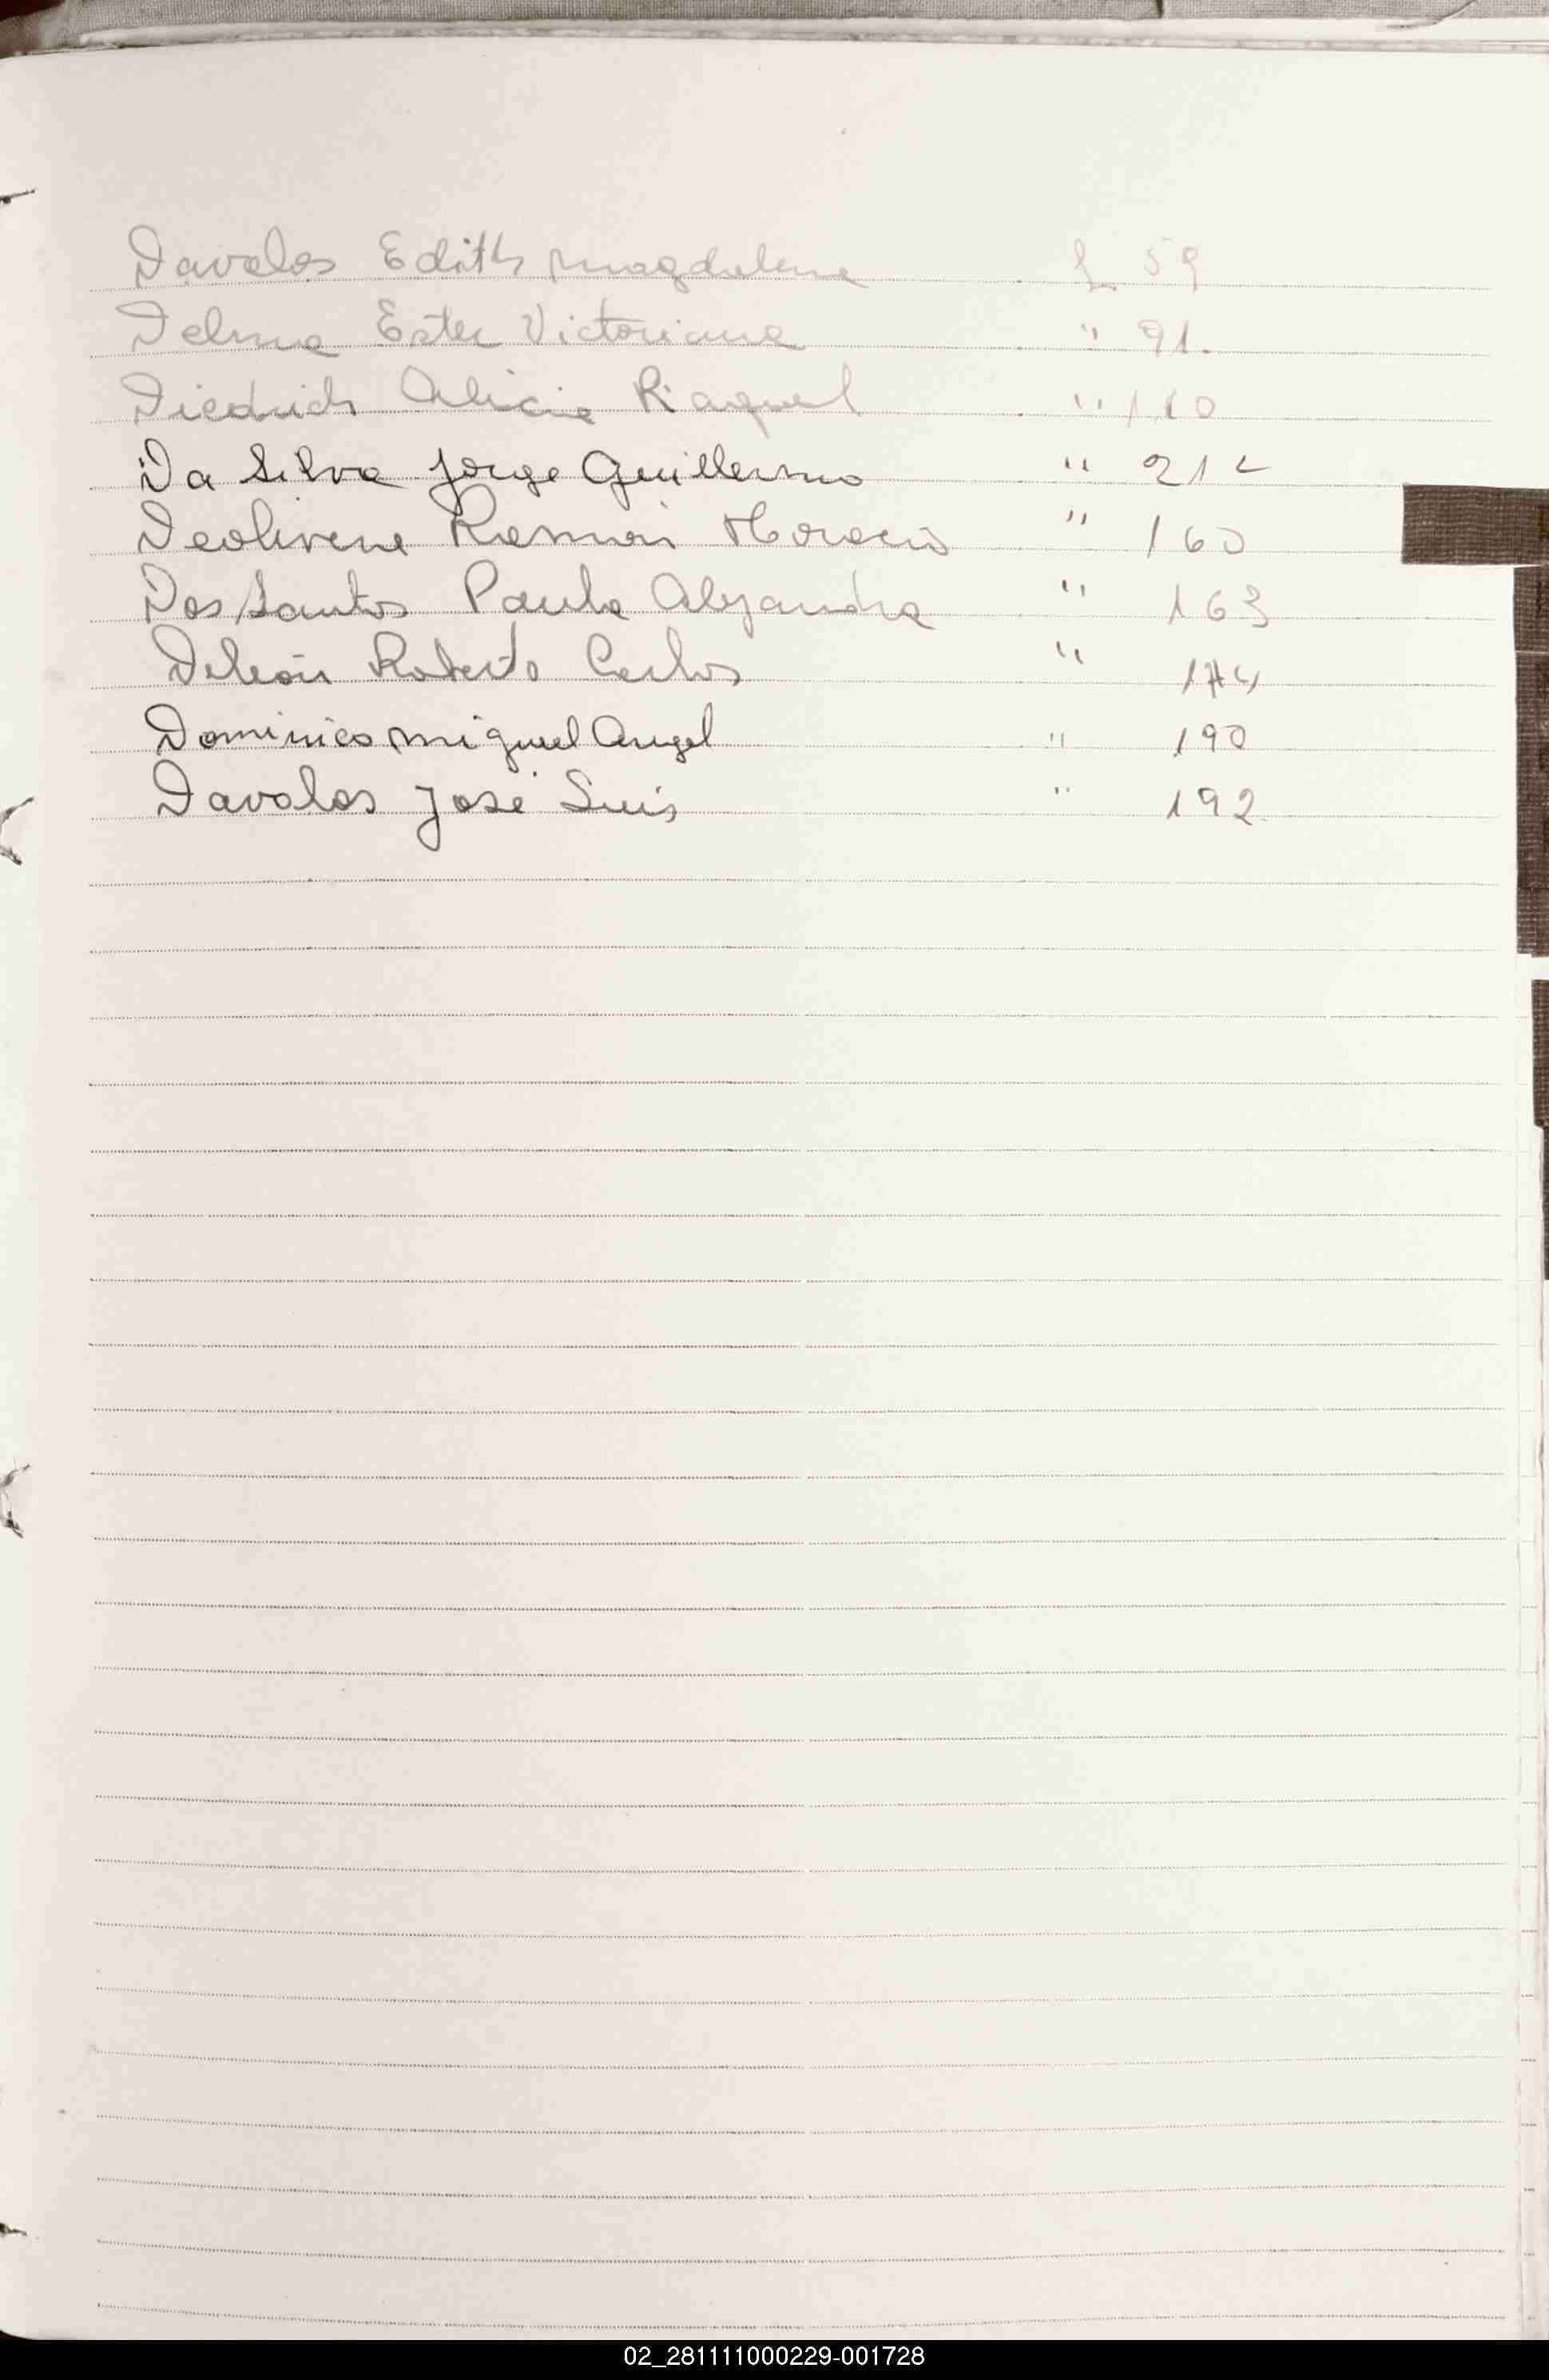 Davalos Edith Magdalena f 59
Delma Ester Victoriana " 91.
Diedrich Alicia Raquel " 110
Da Silva Jorge Guillermo "
Deolivera Ramón Horacio " 160
Dos Santos Paula Alejandra " 163
Deleón Roberto Carlos " 174
Dominico Miguel Angel " 190
Davalos José Luis " 192
02_281111000229-001728